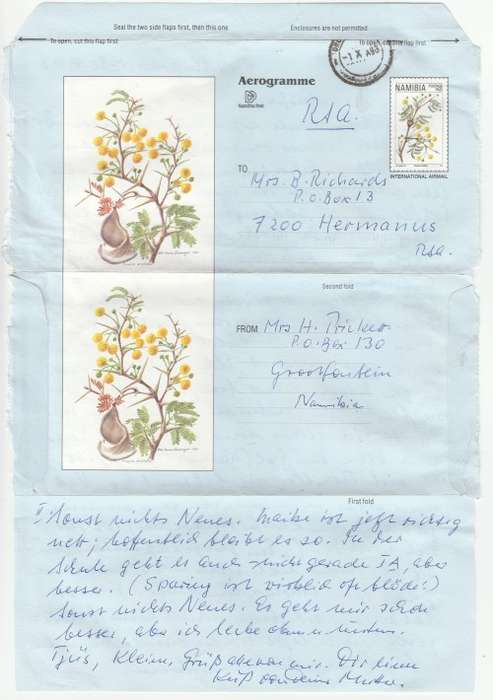 Seal the two side flaps first, then this one
Enclosures are not permitted
To open, cut this flap first
To open, cut this flap first
-1 X
Aerogramme
NamibiaPost
NAMIBIA
INTERNATIONAL AIRMAIL
RSA.
TO
Mrs. B. Richards
P.O. Box 13
7200 Hermanus
RSA.
Second fold
FROM Mrs H.
P.O. Box 130
Grootfontein
Namibia
First fold
Sonst nichts Neues. Maike ist jetzt richtig
nett; hoffentlich bleibt es so. In der
Schule geht es auch nicht gerade IA, aber
besser. (ist wirklich oft blöde!)
Sonst nichts Neues. Es geht mir schon
besser, aber ich
Tjüs, Kleines, Grüß von mir. Dir einen
Kuß von deiner Mutter.